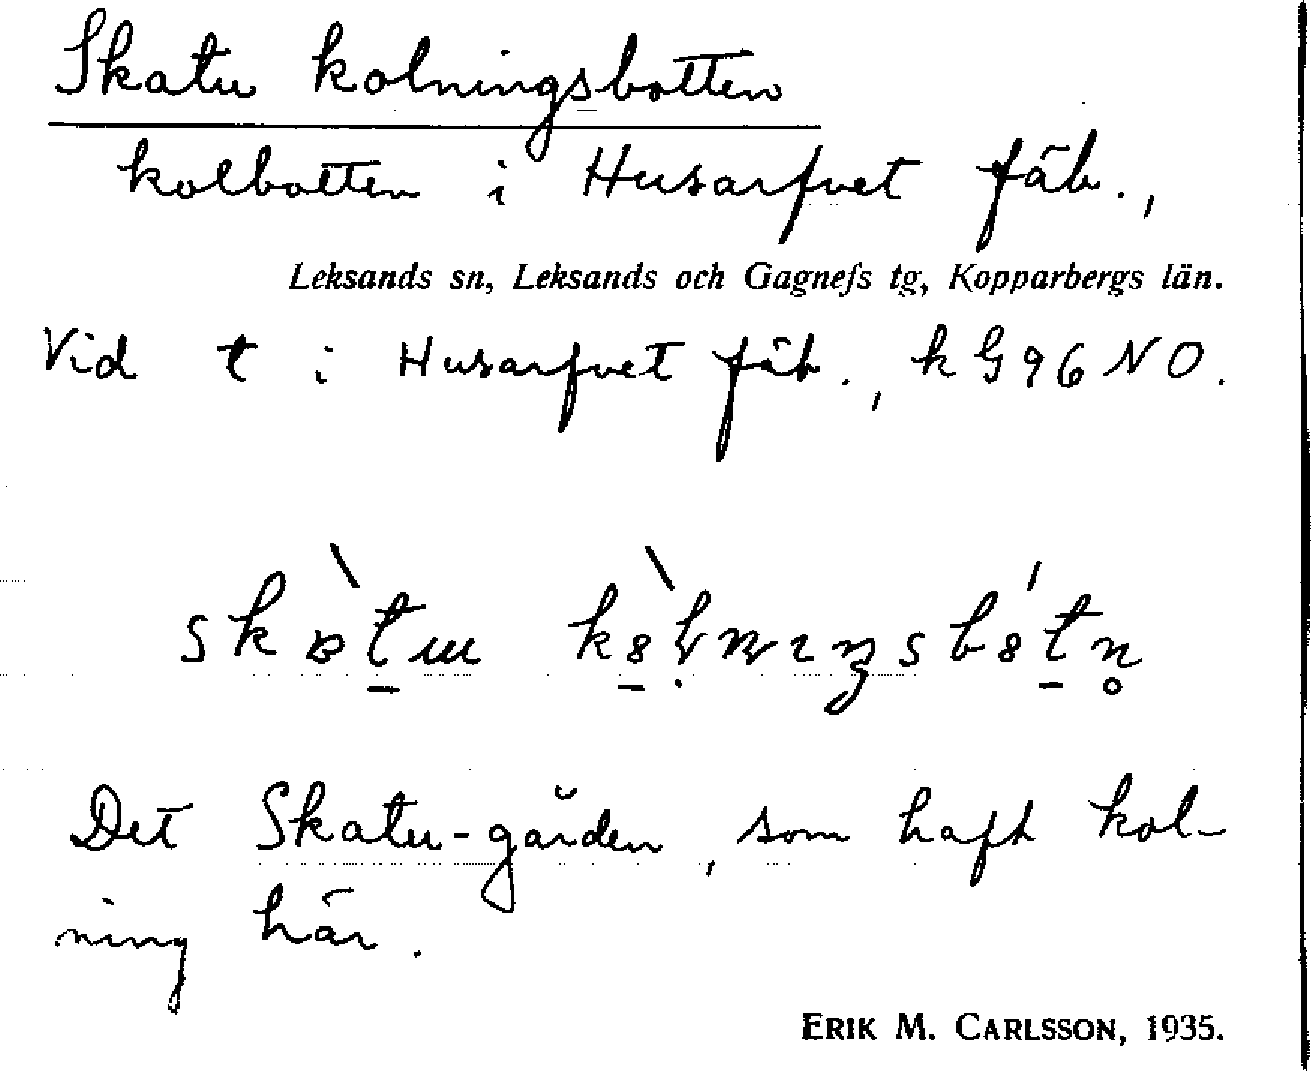 Skatu kolningsbotten
kolbotten i Husarfvet fäb.,
Leksands sn, Leksands och Gagnefs tg, Kopparbergs län.
Vid t i Husarfvet fäb., k G96NO.
Det Skatu-gården, som haft kol-
ning här.
ERIK M. CARLSSON, 1935.